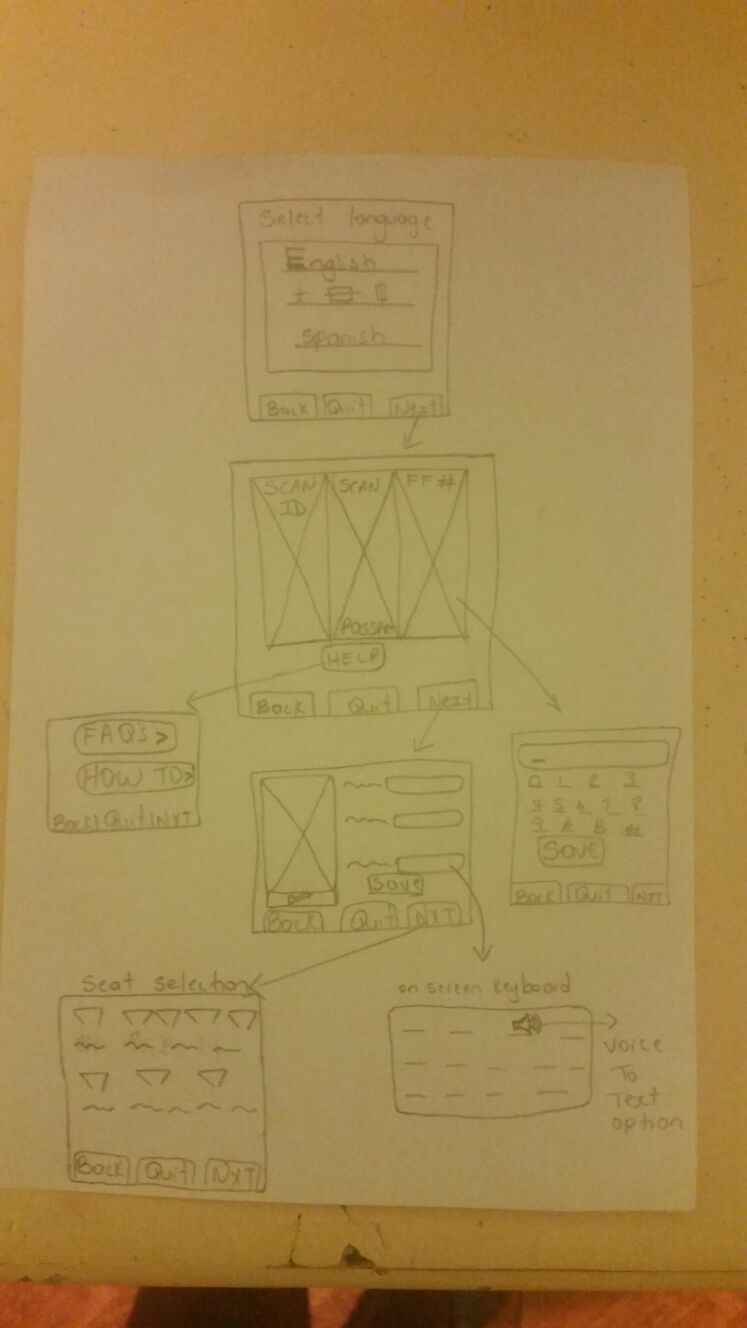 Select language
English
中
Spanish
Back Quit Next
SCAN ID SCAN FF#
PASSP
HELP
Back Quit Next
FAQs >
HOW TO >
Back Quit NXT
Save
Back Quit NXT
0 1 2 3
9 A B #
SAVE
Back Quit NXT
Seat selection
Back Quit NXT
on screen keyboard
Voice
To
Text
option